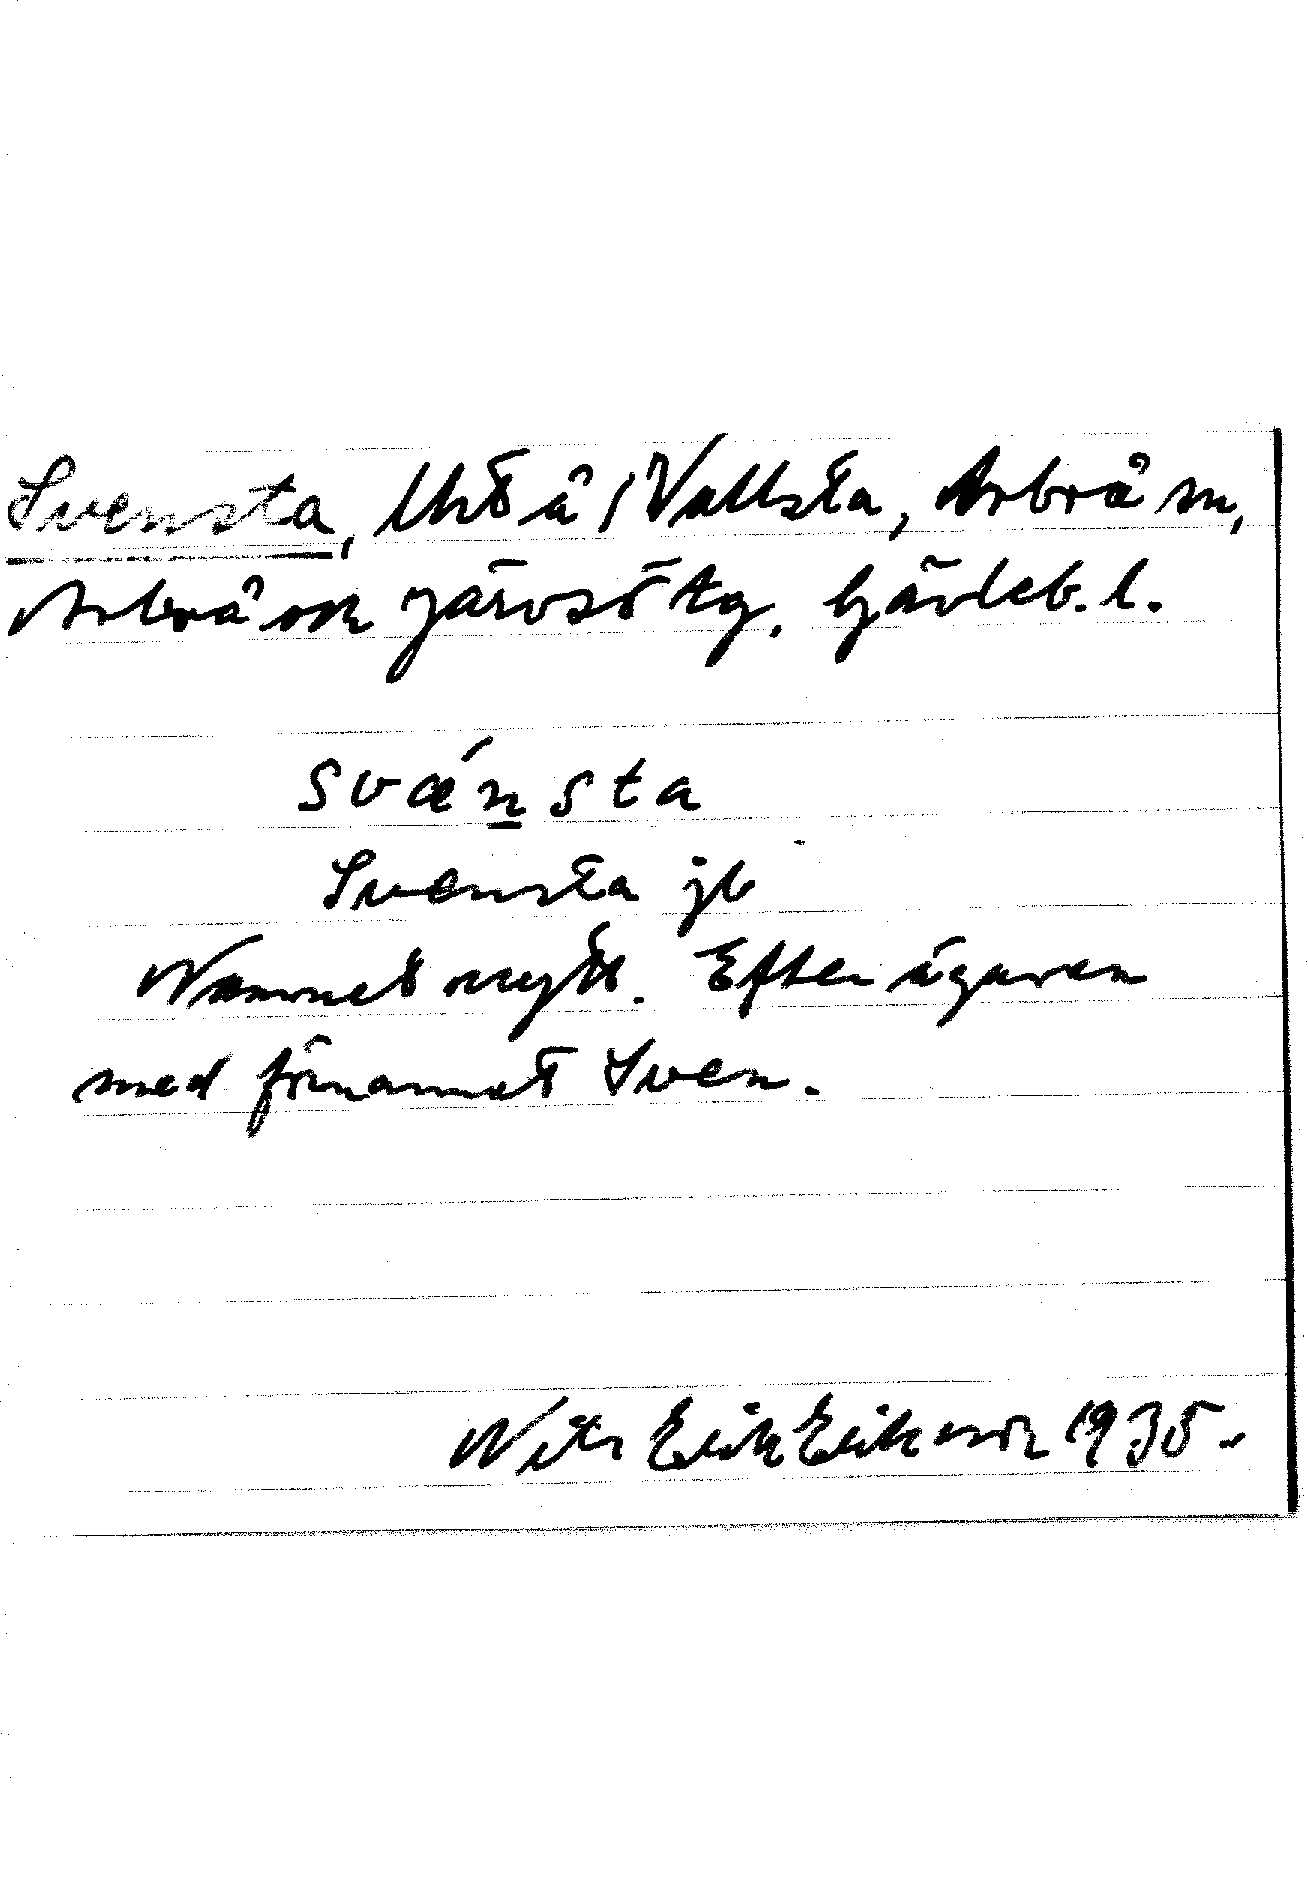 Svensta, lht å 1 Vallsta, Arbrå sn,
Arbrå ock Järvsö tg. Gävleb. l.
svǽn̲sta
Svensta jb
Namnet nytt. Efter ägaren
med förnamnet Sven.
Nils Erik Eriksson 1935.